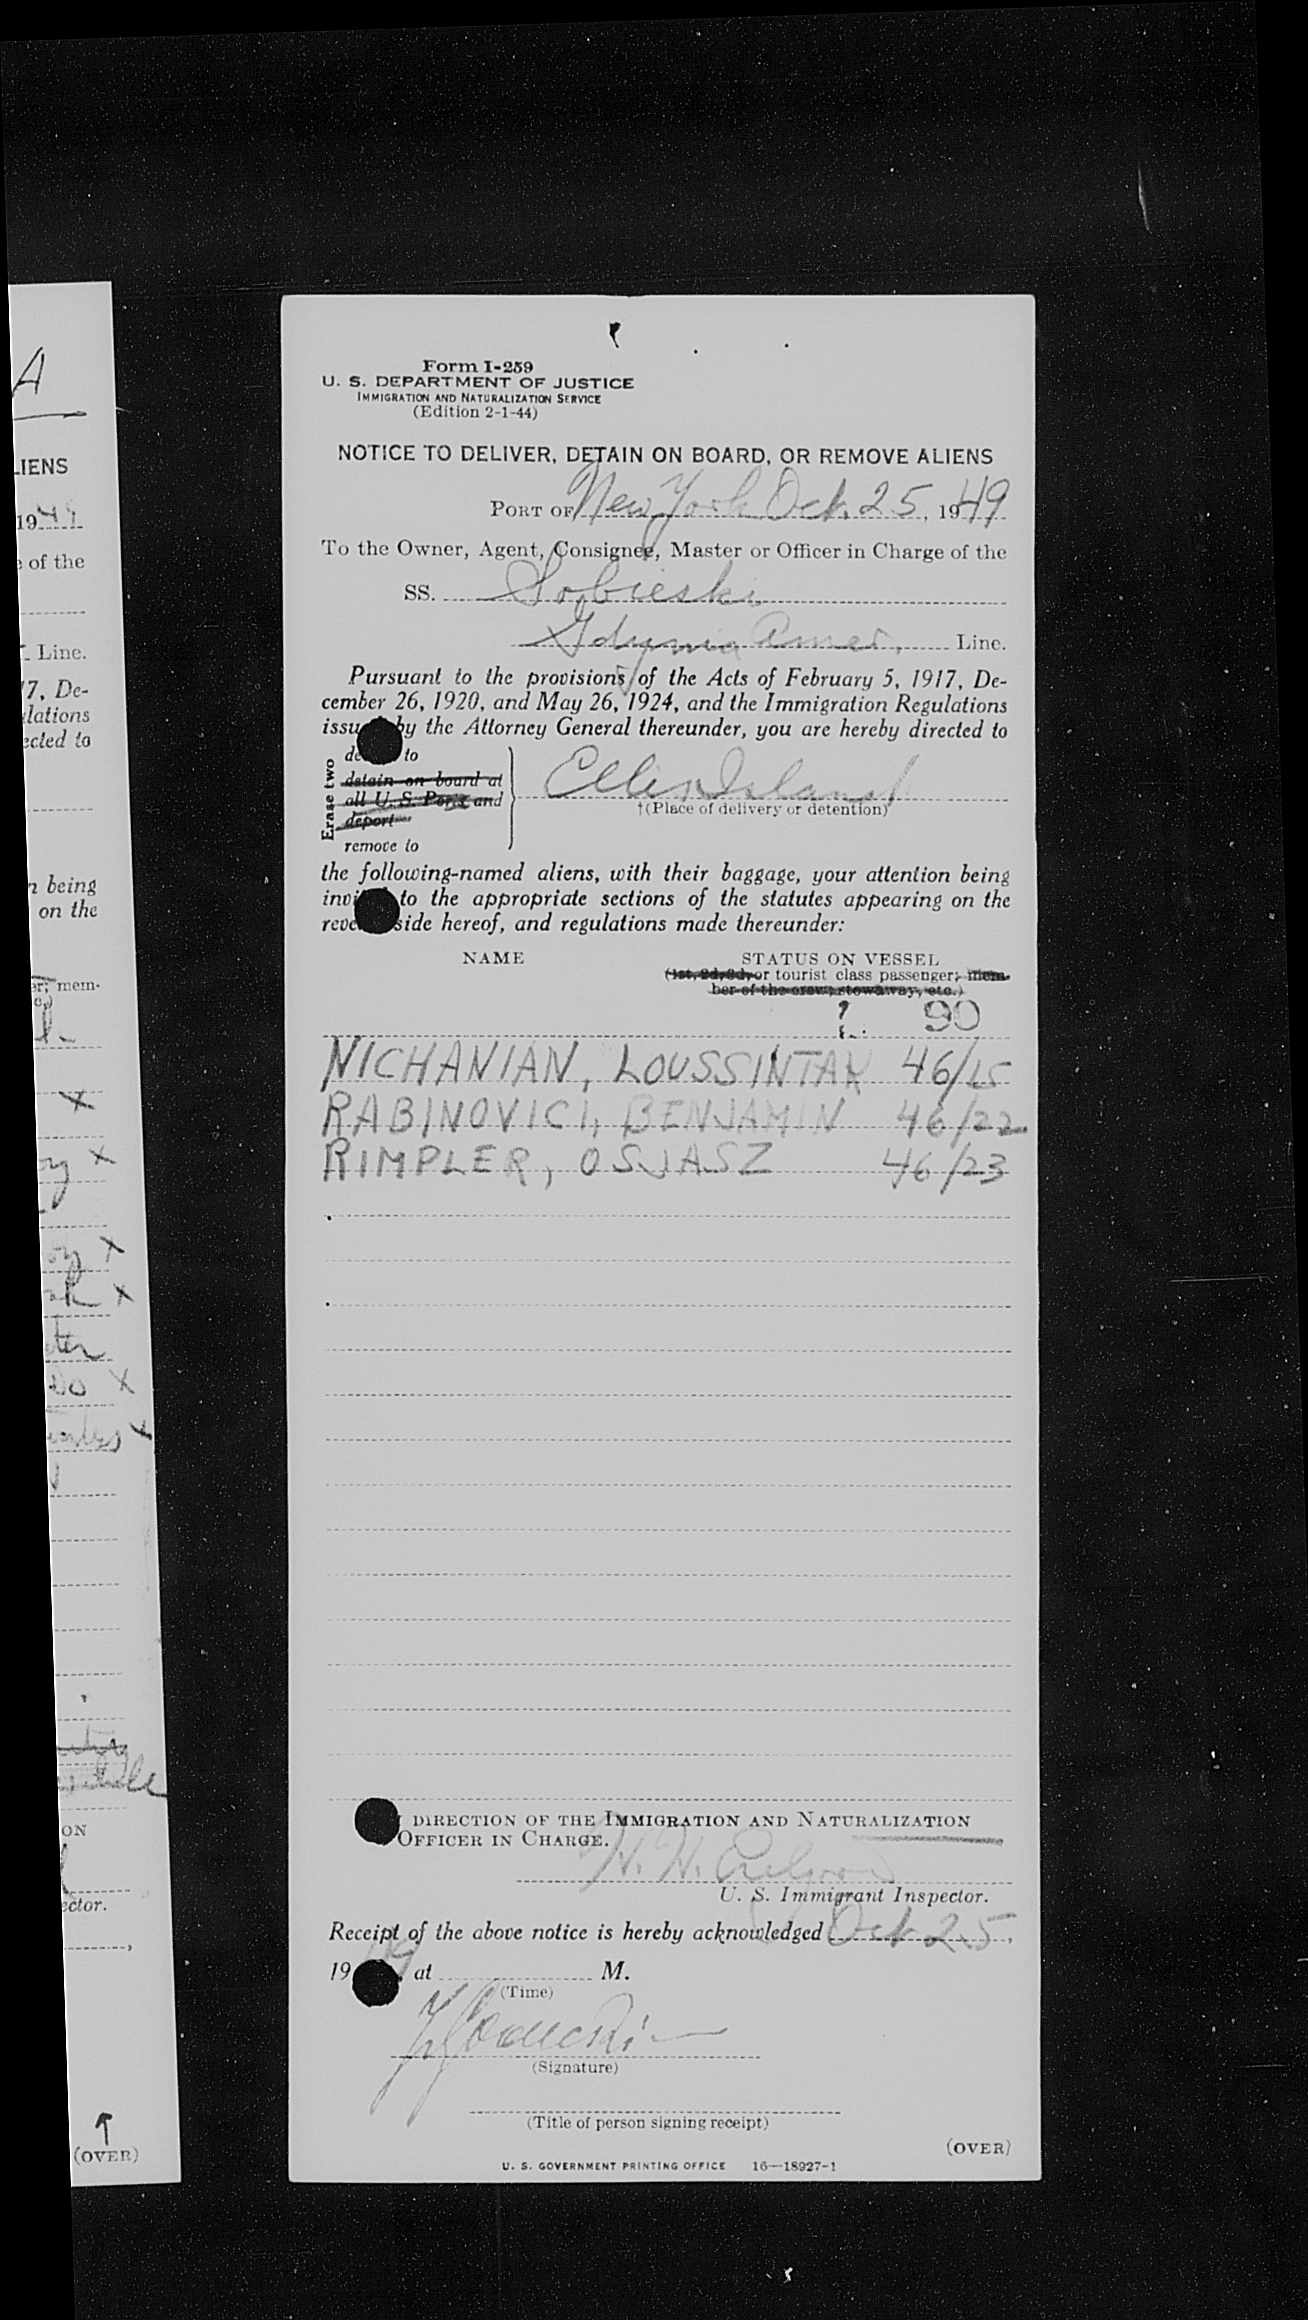 A
LIENS
1949
of the
Line.
7, De-
lations
ected to
being
on the
er; mem-
c.)
x
x
x
x
x
x
ON
ector.
(OVER)
Form I-259
U. S. DEPARTMENT OF JUSTICE
IMMIGRATION AND NATURALIZATION SERVICE
(Edition 2-1-44)
NOTICE TO DELIVER, DETAIN ON BOARD, OR REMOVE ALIENS
PORT OF New York Oct. 25, 1949
To the Owner, Agent, Consignee, Master or Officer in Charge of the
SS. Sobieski
Gdynia Amer. Line.
Pursuant to the provisions of the Acts of February 5, 1917, De-
cember 26, 1920, and May 26, 1924, and the Immigration Regulations
issued by the Attorney General thereunder, you are hereby directed to
Erase two
de to
detain on board at
all U. S. Ports and
deport
remove to
Ellis Island
†(Place of delivery or detention)
the following-named aliens, with their baggage, your attention being
invited to the appropriate sections of the statutes appearing on the
reverse side hereof, and regulations made thereunder:
NAME STATUS ON VESSEL
(1st, 2d, 3d, or tourist class passenger; mem-
ber of the crew, stowaway, etc.)
90
NICHANIAN, LOUSSINTAK 46/15
RABINOVICI, BENJAMIN 46/22
RIMPLER, OSJASZ 46/23
DIRECTION OF THE IMMIGRATION AND NATURALIZATION
OFFICER IN CHARGE.
W. W.
U. S. Immigrant Inspector.
Receipt of the above notice is hereby acknowledged Oct 25,
1949, at M.
(Time)
(Signature)
(Title of person signing receipt)
(OVER)
U. S. GOVERNMENT PRINTING OFFICE 16—18927-1